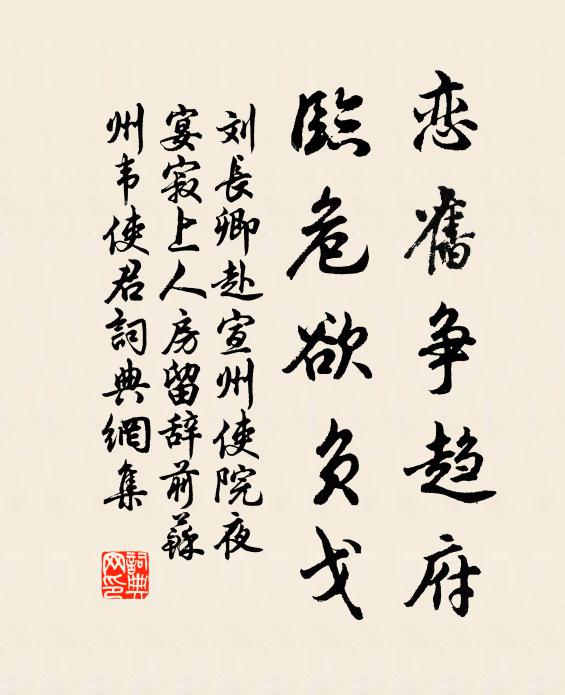 恋舊争趋府
臨危欲负戈
刘長卿赴宣州使院夜
宴寂上人房留辞前蘇
州韦使君詞典網集
詞典
网印